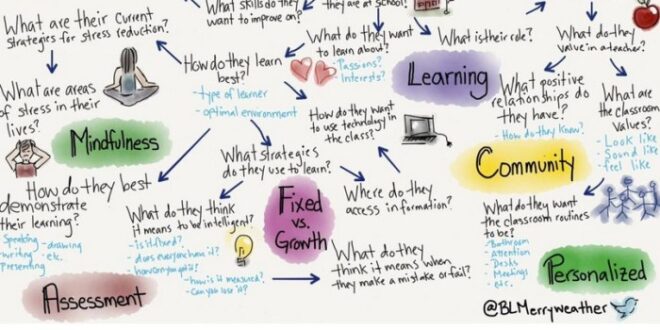 What are their current
strategies for stress reduction?
What skills do they
want to improve on?
they are at school!
What do they want
to learn about?
- Passions?
- Interests?
What is their role?
What do they
value in a teacher?
How do they learn
best?
- type of learner
- optimal environment
Learning
What are areas
of stress in their
lives?
Mindfulness
How do they want
to use technology in
the class?
What positive
relationships do
they have?
- How do they know?
What are
the classroom
values?
- Look like
- Sound like
- feel like
Community
What strategies
do they use to learn?
How do they best
demonstrate
their learning?
Speaking - drawing
writing - etc.
Presenting
What do they think
it means to be intelligent?
- is it fixed?
- does everyone have it?
- how can you get it?
- how is it measured?
- Can you lose it?
Fixed
vs.
Growth
Where do they
access information?
What do they want
the classroom routines
to be?
- Bathroom
- Attention
- Desks
- Meetings
- etc.
What do they
think it means when
they make a mistake or fail?
Personalized
Assessment
@BLMerryweather